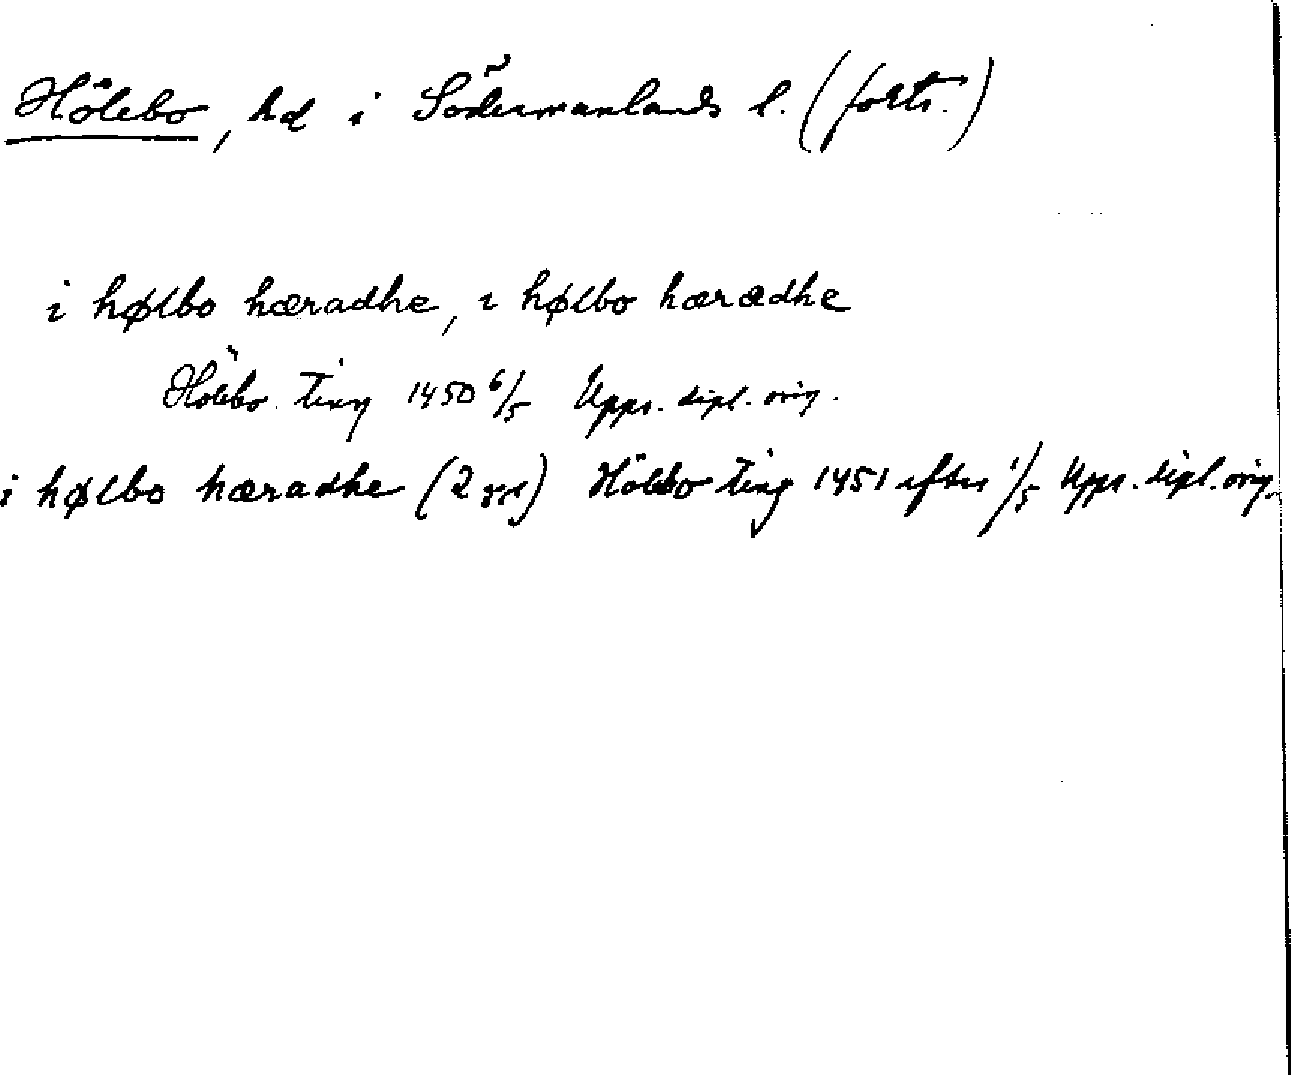 Hölebo, hd i Södermanlands l. (forts.)
i hølbo hæradhe, i hølbo hærædhe
Hölebo ting 1450 6/5 Upps. dipl. orig.
i hølbo hæradhe (2 ggr) Hölebo ting 1451 efter 1/5 Upps. dipl. orig.